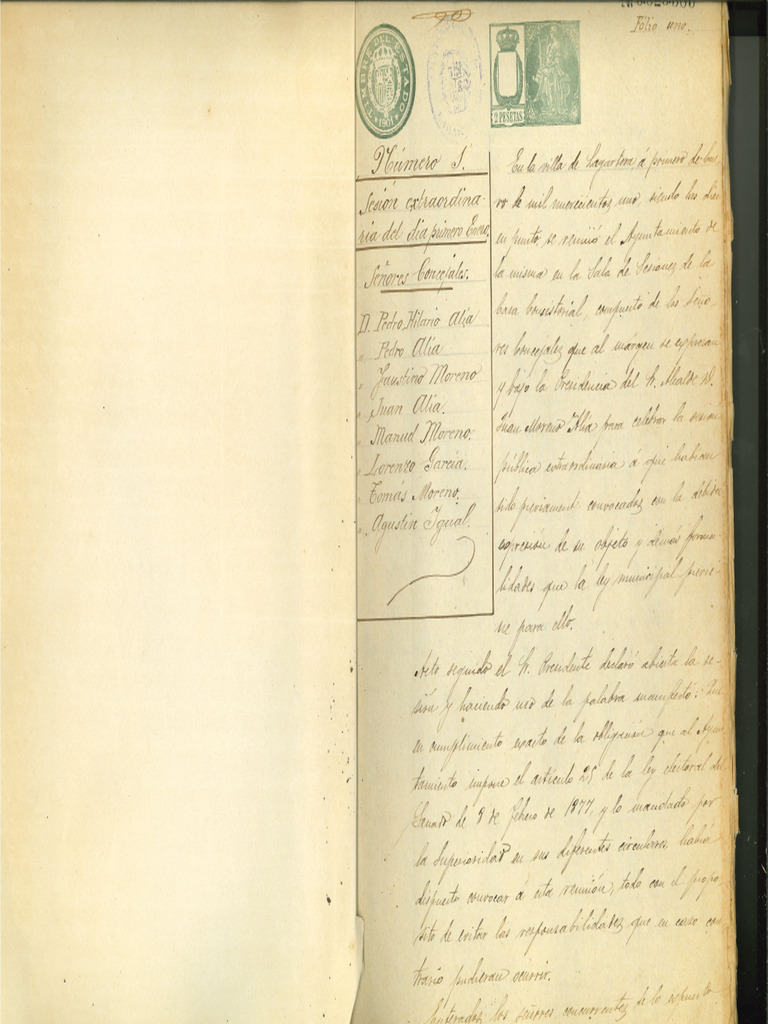 Folio uno.
TIMBRE DEL ESTADO
1901
2 PESETAS
Número 1.
Sesión extraordina-
ria del día primero Enero.
Señores Concejales.
D. Pedro Hilario Alia
" Pedro Alia
" Faustino Moreno
" Juan Alia.
" Manuel Moreno.
" Lorenzo García.
" Tomás Moreno.
" Agustín Igual.
En la villa de Lagartera, á primero de Ene-
ro de mil novecientos uno, siendo las diez
en punto, se reunió el Ayuntamiento de
la misma en la Sala de Sesiones de la
Casa Consistorial, compuesto de los Seño-
res Concejales que al márgen se expresan
y bajo la Presidencia del Sr. Alcalde D.
Juan Moreno Alia para celebrar la sesión
pública extraordinaria á que habían
sido previamente convocados con la debida
expresión de su objeto y demás forma-
lidades que la ley municipal previe-
ne para ello.
Acto seguido el Sr. Presidente declaró abierta la se-
sión y haciendo uso de la palabra manifestó: Que
en cumplimiento exacto de la obligación que al Ayun-
tamiento impone el artículo 25 de la ley electoral del
Senado de 8 de Febrero de 1877, y lo mandado por
la Superioridad en sus diferentes circulares, había
dispuesto convocar á esta reunión, todo con el propó-
sito de evitar las responsabilidades que en caso con-
trario pudieran ocurrir.
Enterados los señores concurrentes de lo expuesto